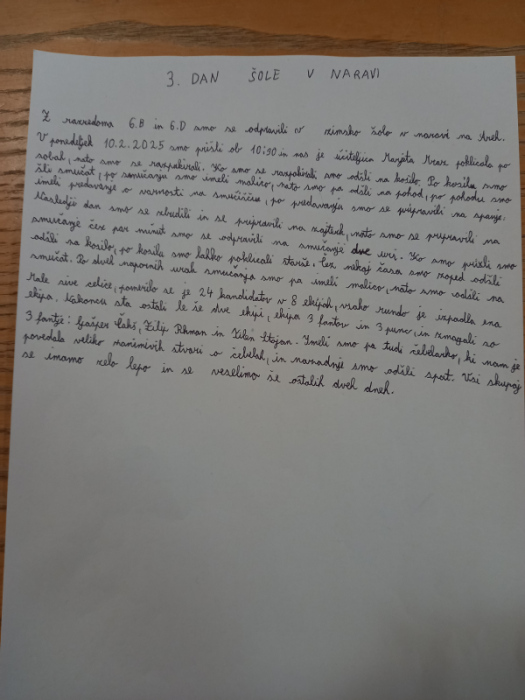 3. DAN ŠOLE V NARAVI
Z razredoma 6.B in 6.D smo se odpravili v zimsko šolo v naravi na Areh.
V ponedeljek 10.2.2025 smo prišli ob 10:30 in nas je učiteljica Marjeta Krave poklicala po
sobah, nato smo se razpakirali. Ko smo se razpakirali smo odšli na kosilo. Po kosilu smo
šli smučat, po smučanju smo imeli malico, nato smo pa odšli na pohod, po pohodu smo
imeli predavanje o varnosti na smučišču, po predavanju smo se pripravili na spanje.
Naslednji dan smo se zbudili in se pripravili na zajtrk, nato smo se pripravili na
smučanje čez par minut smo se odpravili na smučanje dve uri. Ko smo prišli smo
odšli na kosilo, po kosilu smo lahko poklicali starše. Čez nekaj časa smo zopet odšli
smučat. Po dveh napornih urah smučanja smo pa imeli malico, nato smo odšli na
Male sive celice, pomerilo se je 24 kandidatov v 8 ekipah, vsako rundo je izpadla ena
ekipa. Nakoncu sta ostali le še dve ekipi, ekipa 3 fantov in 3 punc, in zmagali so
3 fantje: Gašper Čakš, Filip Rihman in Žan Stojan. Imeli smo pa tudi čebelarko, ki nam je
povedala veliko zanimivih stvari o čebelah, in navsadnje smo odšli spat. Vsi skupaj
se imamo zelo lepo in se veselimo še ostalih dveh dneh.